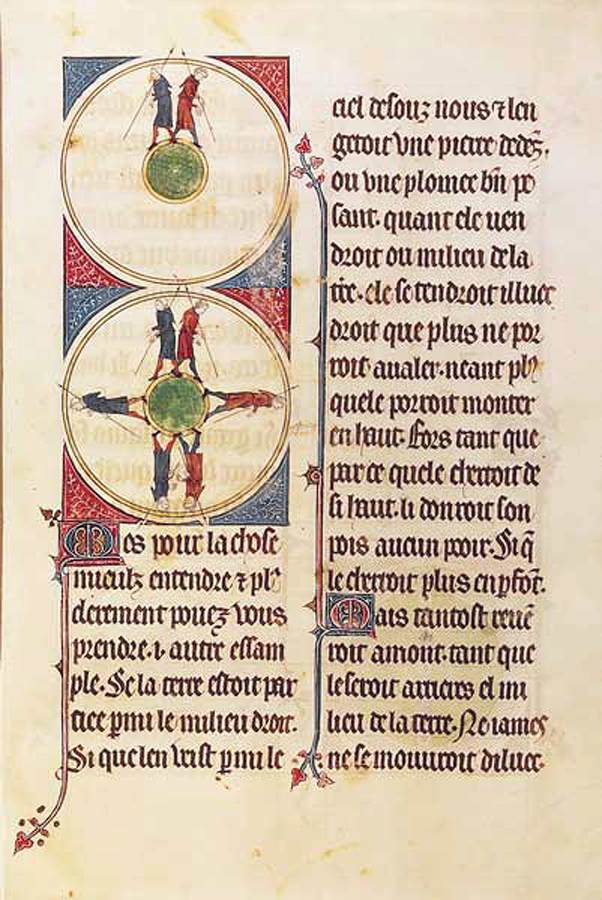 Mes pour la chose
mieulz entendre ⁊ plꝰ
clerement pouez vous
prendre .i. autre essam
ple. Se la terre estoit par
tiee pmi le milieu droit.
Si que len veist pmi le
ciel desouz nous ⁊ len
getoit vne pierre dedēz.
ou vne plomee bn̄ pe
sant. quant ele uen
droit ou milieu de la
tr̄e. ele se tendroit illuec
droit que plus ne por
roit aualer. neant plꝰ
quele porroit monter
en haut. fors tant que
par ce quele cherroit de
si haut. li donroit son
pois aucun pooir. Si q̄
le cherroit plus en pfōt.
Mais tantost reuē
roit amont. tant que
le seroit arrieres el mi
lieu de la terre. Ne iames
ne se mouuroit diluec.